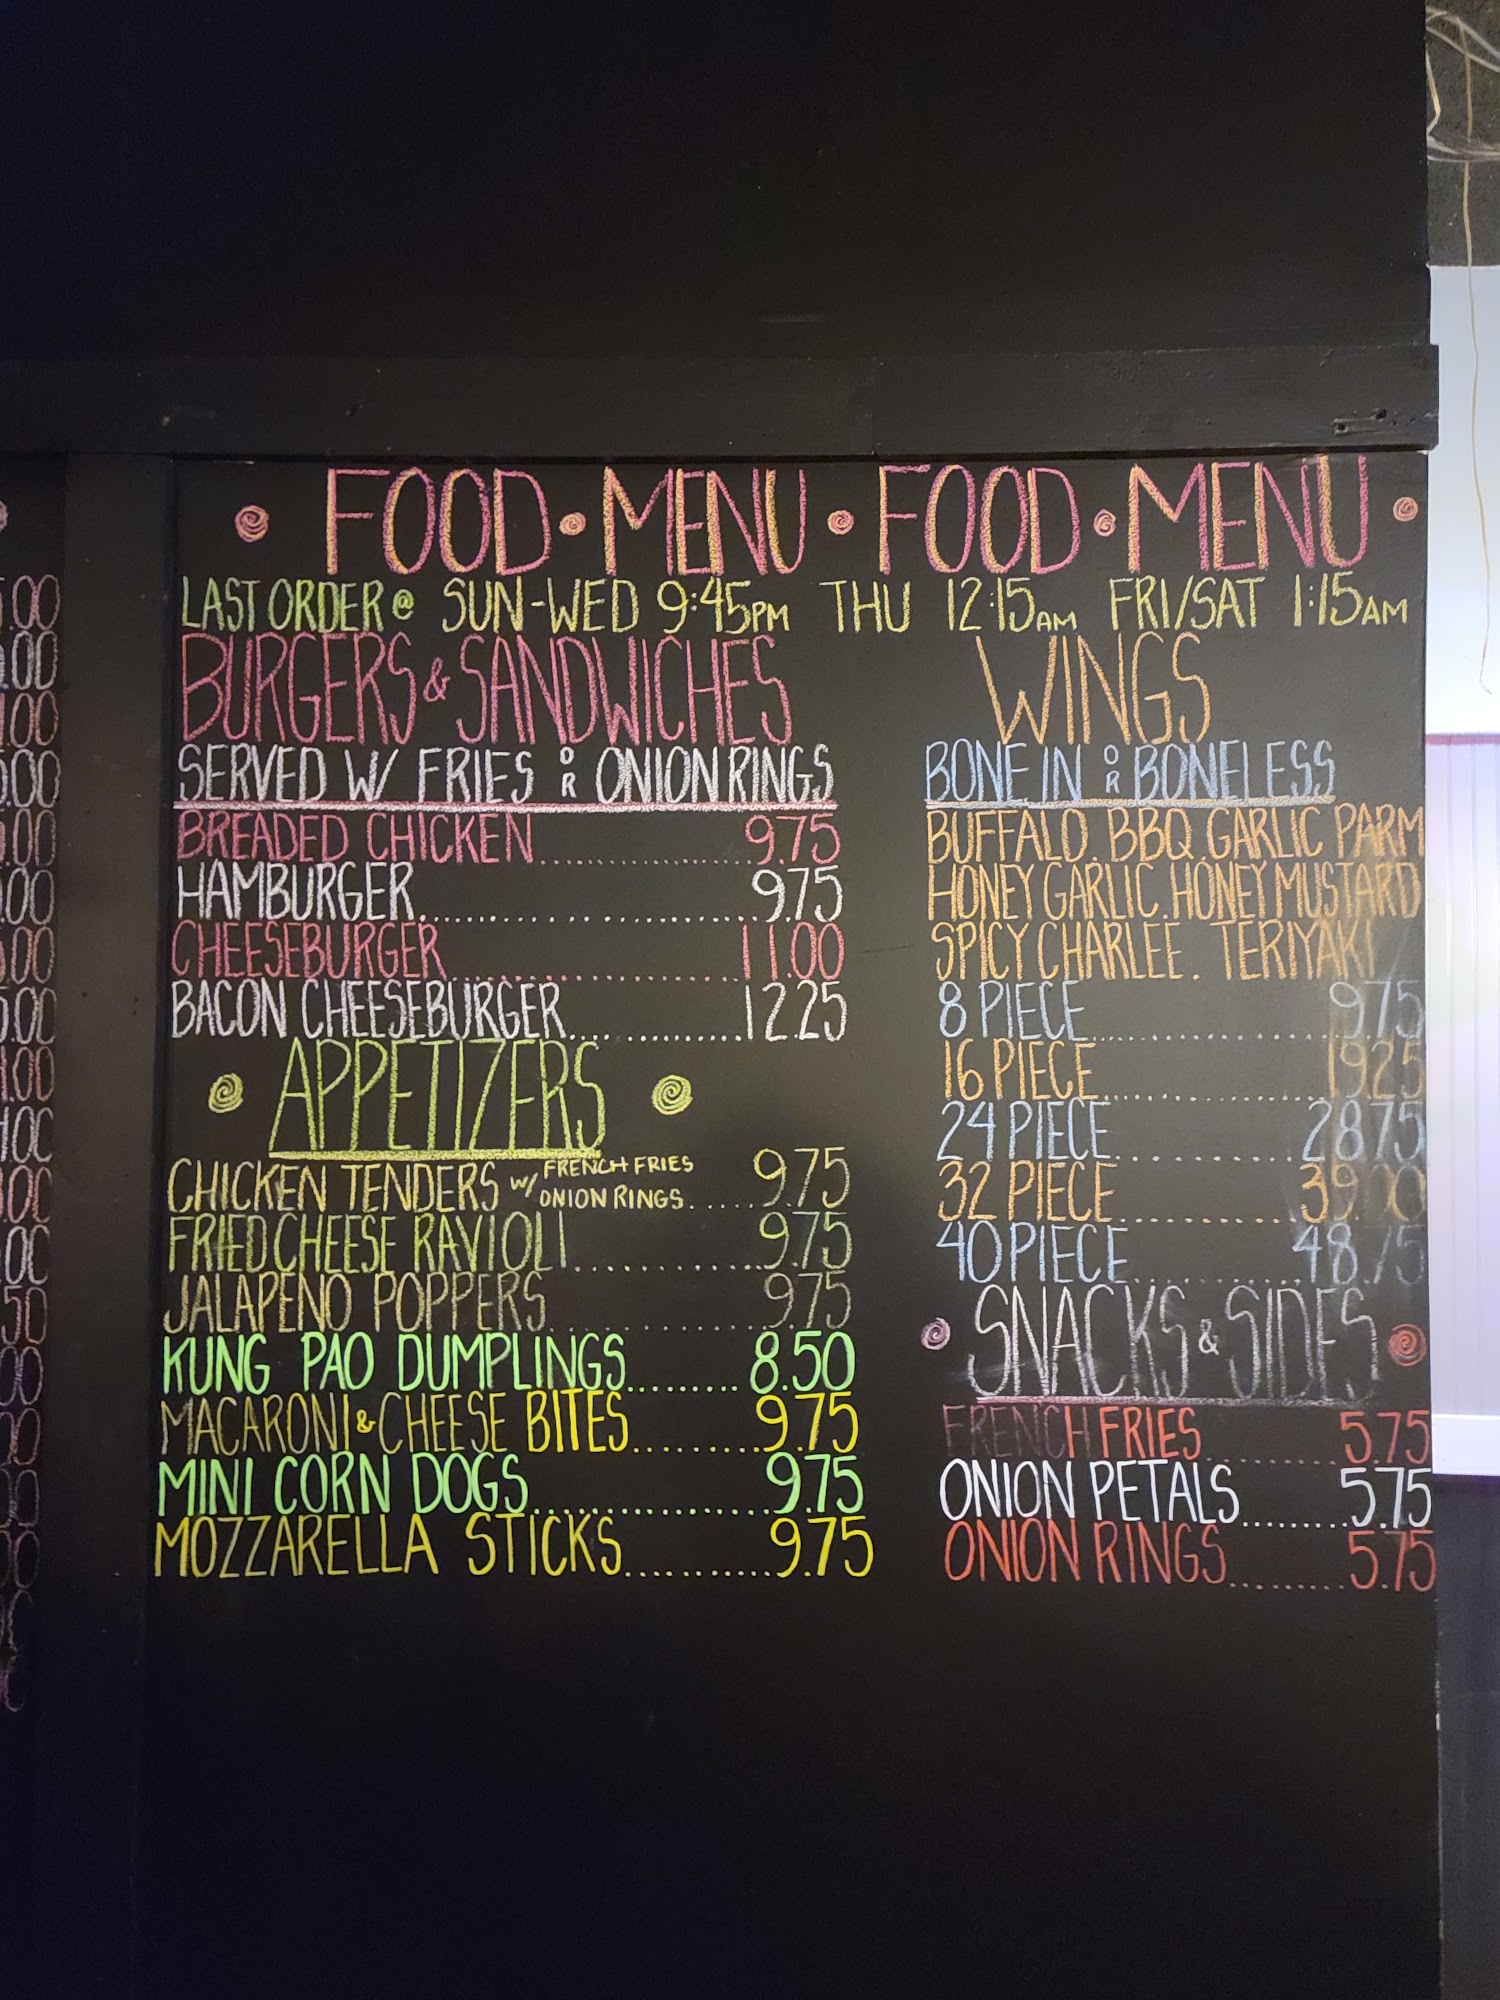 FOOD • MENU • FOOD • MENU
LAST ORDER @ SUN-WED 9:45PM THU 12:15AM FRI/SAT 1:15AM
BURGERS & SANDWICHES
SERVED W/ FRIES OR ONION RINGS
BREADED CHICKEN 9.75
HAMBURGER 9.75
CHEESEBURGER 11.00
BACON CHEESEBURGER 12.25
APPETIZERS
CHICKEN TENDERS W/ FRENCH FRIES
ONION RINGS 9.75
FRIED CHEESE RAVIOLI 9.75
JALAPENO POPPERS 9.75
KUNG PAO DUMPLINGS 8.50
MACARONI & CHEESE BITES 9.75
MINI CORN DOGS 9.75
MOZZARELLA STICKS 9.75
WINGS
BONE IN OR BONELESS
BUFFALO. BBQ. GARLIC PARM
HONEY GARLIC. HONEY MUSTARD
SPICY CHARLEE. TERIYAKI
8 PIECE 9.75
16 PIECE 19.25
24 PIECE 28.75
32 PIECE 39.00
40 PIECE 48.75
SNACKS & SIDES
FRENCH FRIES 5.75
ONION PETALS 5.75
ONION RINGS 5.75